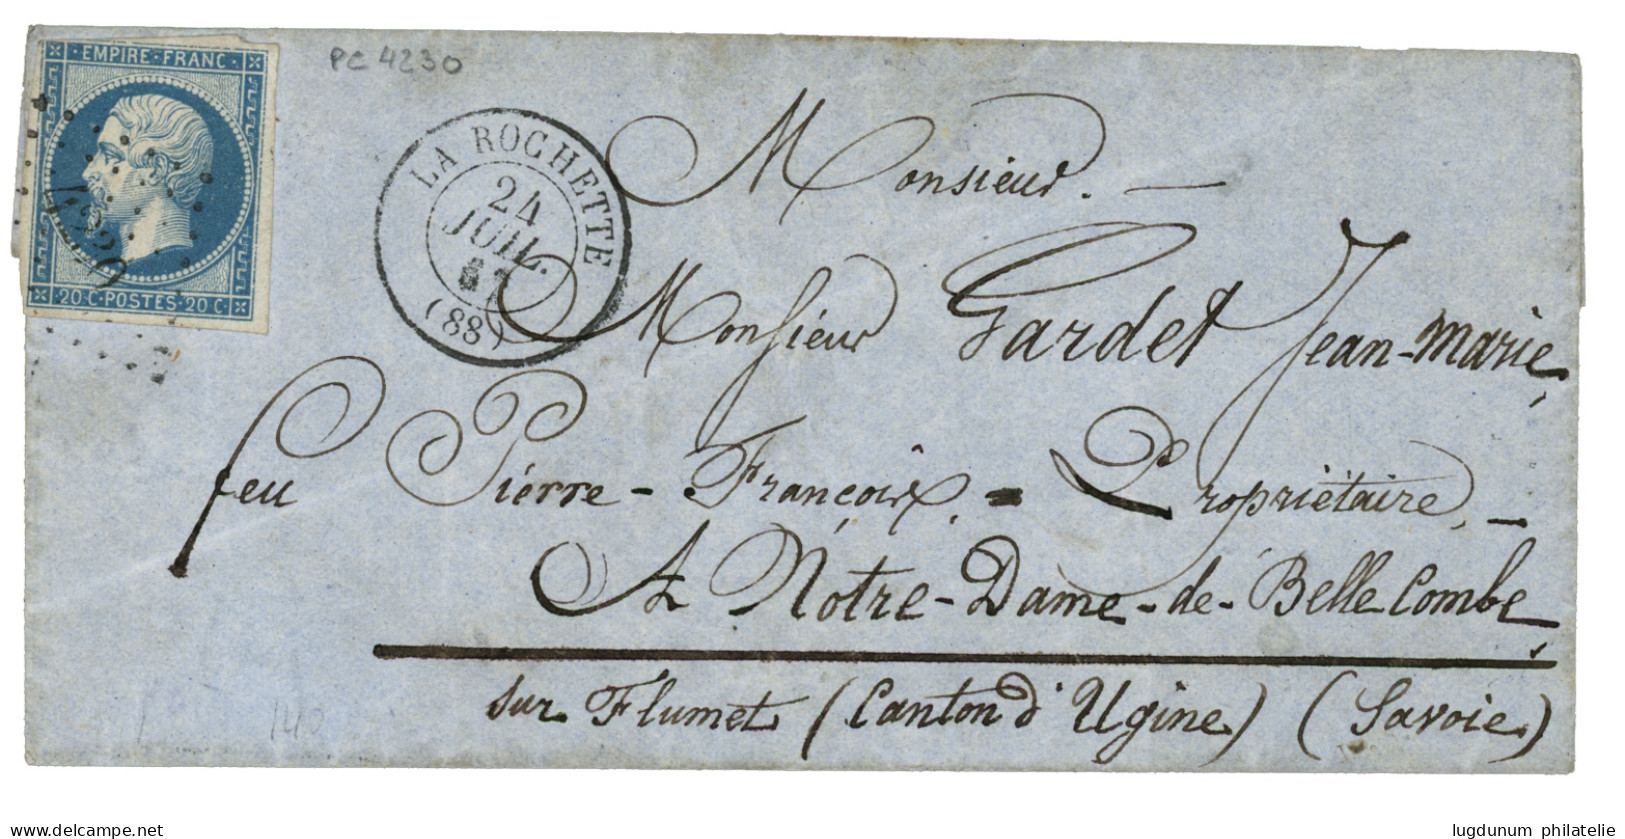 EMPIRE · FRANC ·
4230
20 C · POSTES · 20 C
PC 4230
LA ROCHETTE
24
JUIL.
61
(88)
Monsieur. —
Monsieur Gardet Jean-Marie,
feu Pierre - François, = Propriétaire, —
A Notre-Dame-de-Belle Combe,
sur Flumet (Canton d'Ugine) (Savoie)
140
www.delcampe.net
lugdunum philatelie